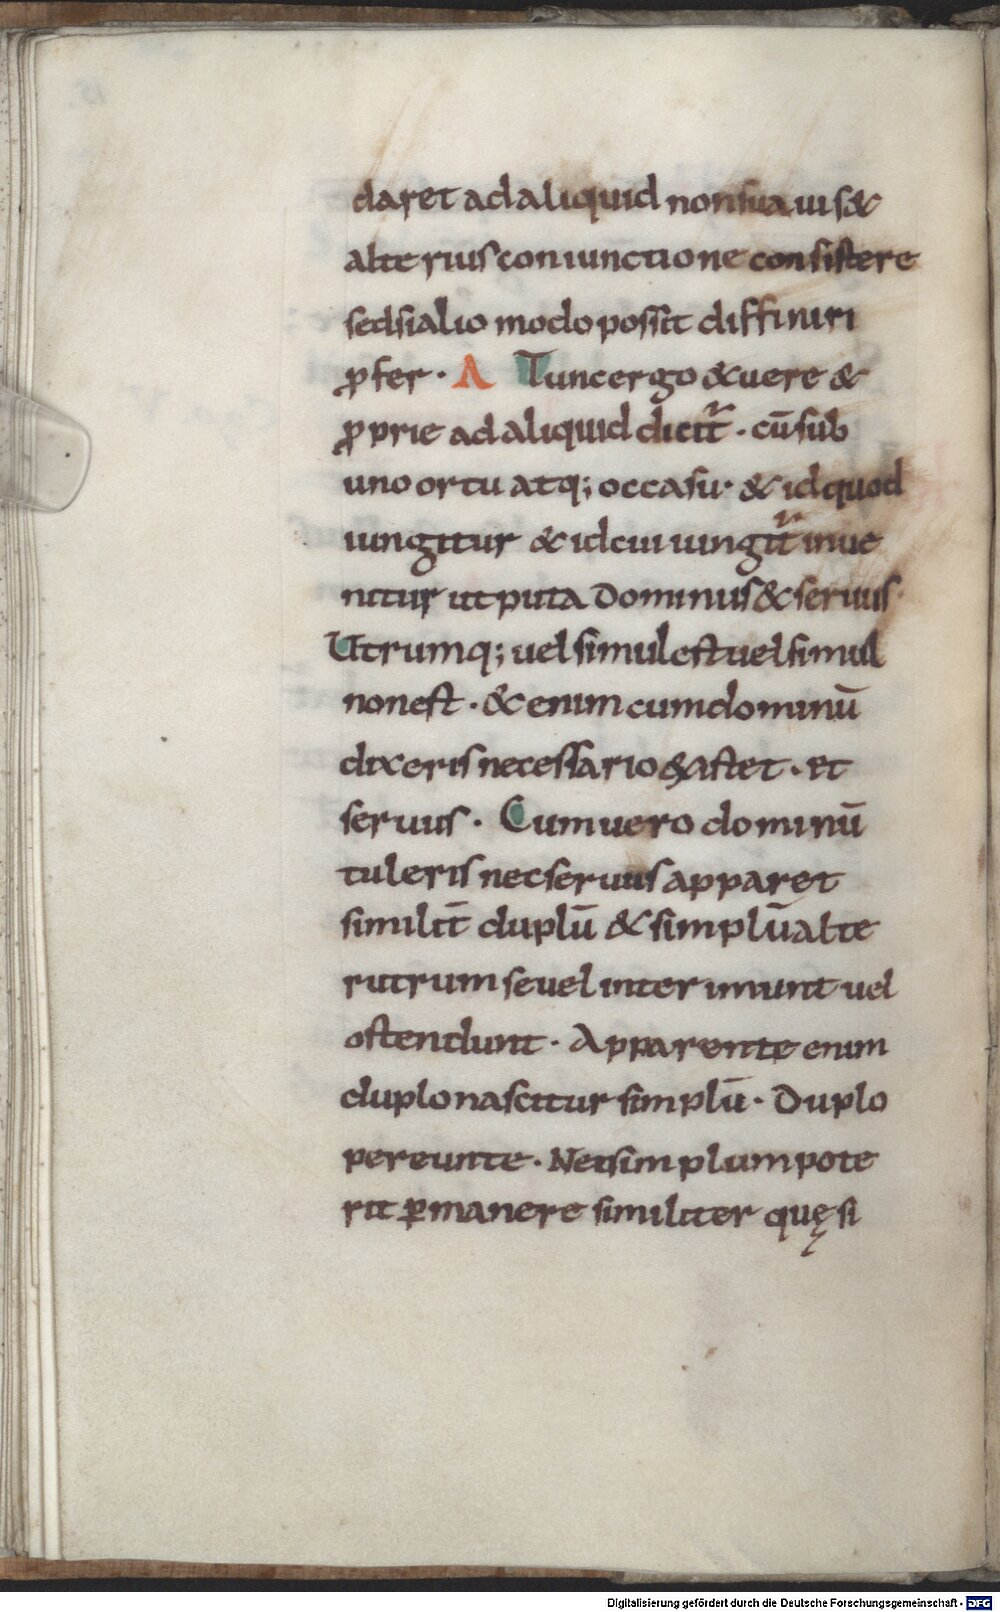 daret ad aliquid non sua ui s&
alterius coniunctione consistere
sed si alio modo possit diffiniri
ꝓfer · A Tunc ergo & uere &
ꝓprie ad aliquid dicit᷑ · cū sub
uno ortu atq; occasu · & id quod
iungitur & id cui iungit᷑ inue
nitur ut puta Dominus & seruus
Utrumq; uel simul est uel simul
non est · & enim cum dominū
dixeris necessario exstet · et
seruus · Cum uero dominū
tuleris nec seruus apparet
similit̄ duplū & simplū alte
rutrum se uel interimunt uel
ostendunt · Apparente enim
duplo nascitur simplū · Duplo
pereunte · Nec simplum pote
rit ꝑmanere similiter quę si
Digitalisierung gefördert durch die Deutsche Forschungsgemeinschaft - DFG